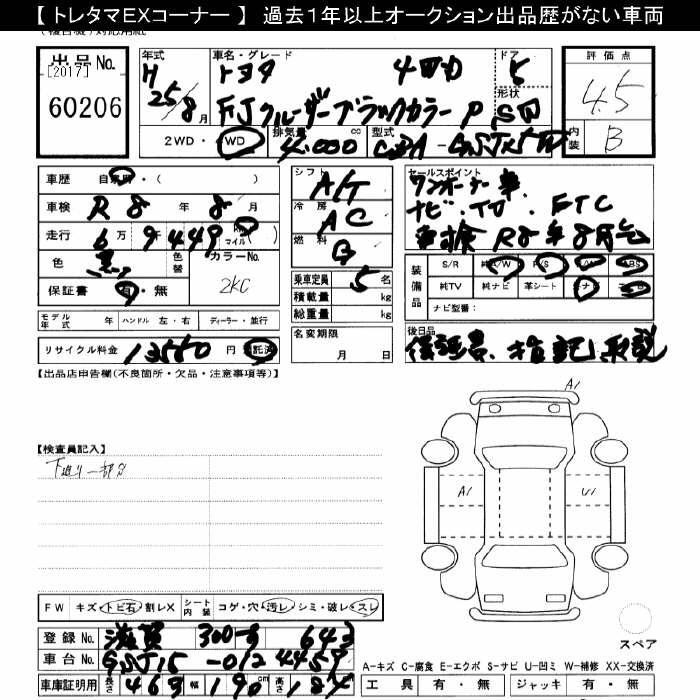 【 トレタマEXコーナー 】 過去1年以上オークション出品歴がない車両
出品No. [2017] 60206
年式 H 25/8月
車名・グレード トヨタ 4ドア
FJクルーザーブラックカラーP
ドア 5
形状 SW
評価点 4.5
内装 B
2WD・4WD 排気量 4.000 cc 型式 CBA-GSJ15W
車歴 自家用・( )
車検 R8年8月
走行 6万9千449 km マイル
色 黒 色替 カラーNo. 2KC
保証書 有・無
シフト A/T
冷房 AC
燃料 G
乗車定員 5名
積載量 kg
総重量 kg
セールスポイント
ワンオーナー車
ナビ・TV・ETC
車検R8年8月迄
装備品 S/R 純A/W P/S P/W ABS
純TV 純ナビ 革シート
ナビ型番:
モデル年式 年 ハンドル 左・右 ディーラー・並行
名変期限 月 日
リサイクル料金 13550円 預託済
後日品
保証書、指記、取説
【出品店申告欄(不良箇所・欠品・注意事項等)】
【検査員記入】
A1
A1
U1
スペア
FW キズ・トビ石・割レX シート内装 コゲ・穴・汚レ・シミ・破レ・スレ
登録No. 滋賀 300 642
車台No. GSJ15-0124459
車庫証明用 長さ 463 幅 190 高さ 184 cm
A-キズ C-腐食 E-エクボ S-サビ U-凹ミ W-補修 XX-交換済
工具 有・無 ジャッキ 有・無